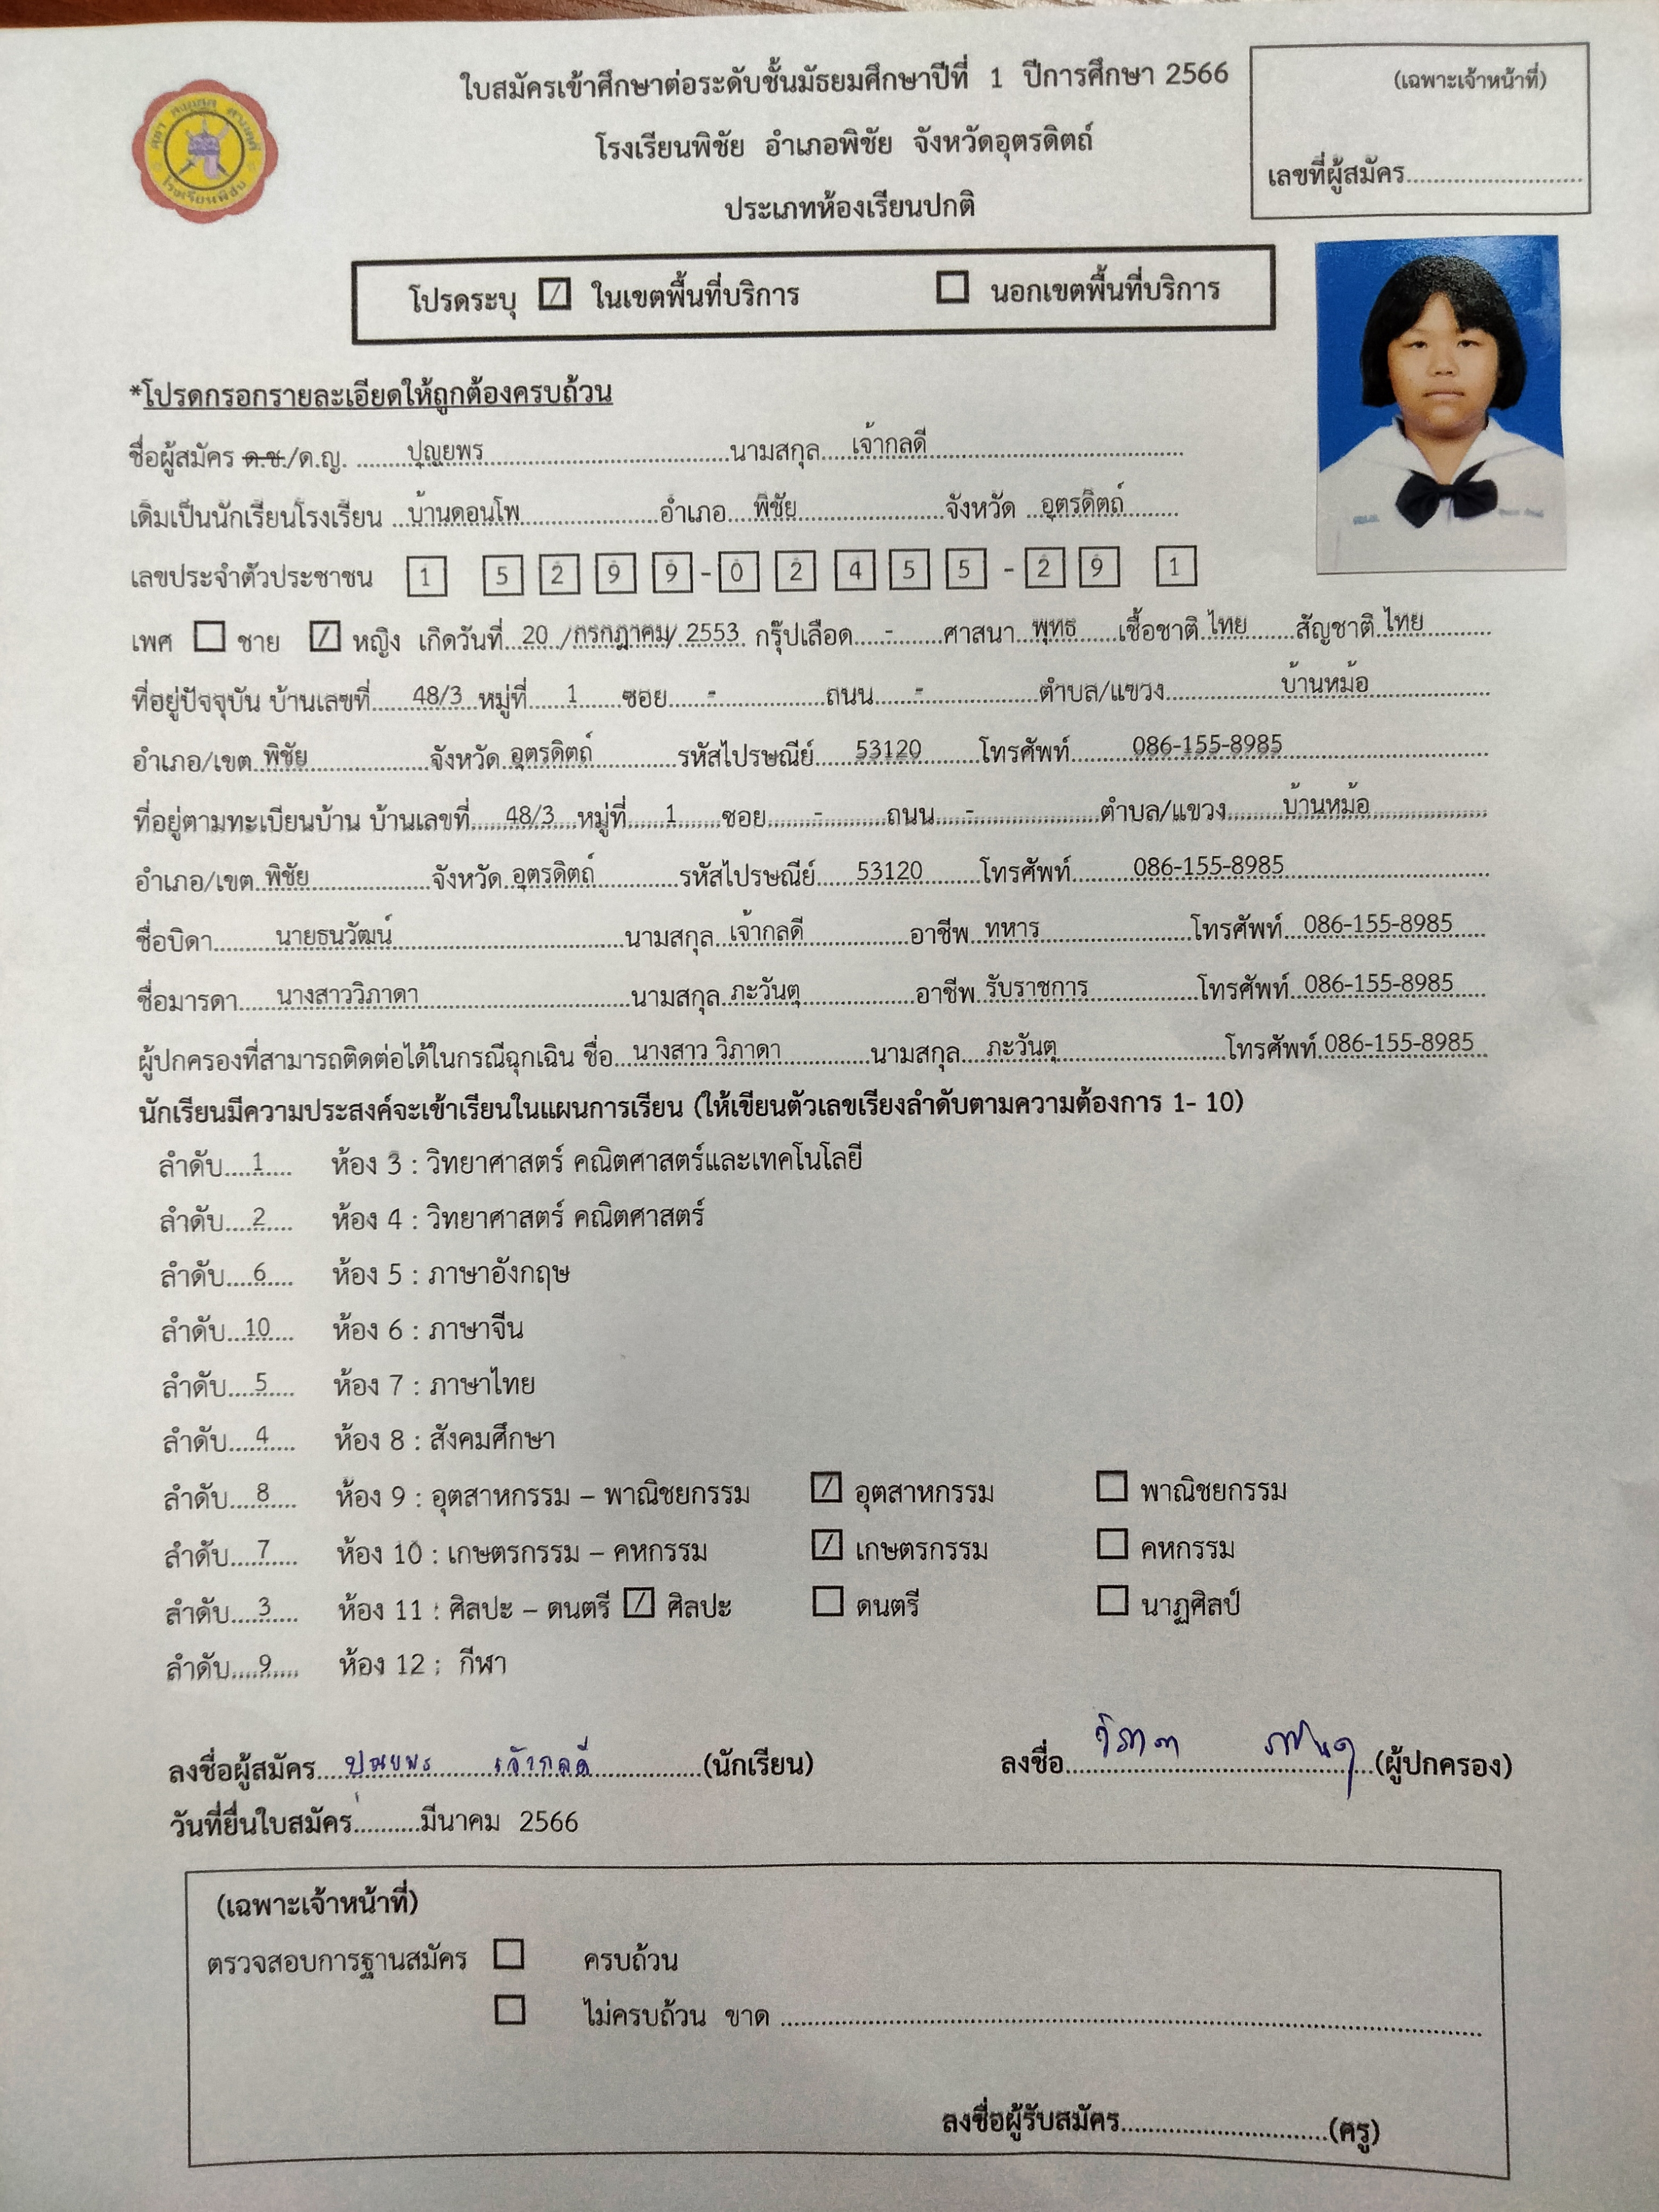 ใบสมัครเข้าศึกษาต่อระดับชั้นมัธยมศึกษาปีที่ 1 ปีการศึกษา 2566
(เฉพาะเจ้าหน้าที่)
โรงเรียนพิชัย อำเภอพิชัย จังหวัดอุตรดิตถ์
เลขที่ผู้สมัคร..............................
ประเภทห้องเรียนปกติ
โรงเรียนพิชัย
โปรดระบุ [/] ในเขตพื้นที่บริการ [ ] นอกเขตพื้นที่บริการ
*โปรดกรอกรายละเอียดให้ถูกต้องครบถ้วน
ชื่อผู้สมัคร ด.ช./ด.ญ. ........ปุญยพร........................................นามสกุล.....เจ้ากลดี..........................................
เดิมเป็นนักเรียนโรงเรียน ..บ้านดอนโพ......................อำเภอ....พิชัย.......................จังหวัด ..อุตรดิตถ์........
เลขประจำตัวประชาชน 1 5 2 9 9 - 0 2 4 5 5 - 2 9 1
เพศ [ ] ชาย [/] หญิง เกิดวันที่...20../กรกฎาคม/.2553. กรุ๊ปเลือด.....-........ศาสนา...พุทธ......เชื้อชาติ.ไทย.......สัญชาติ.ไทย...........
ที่อยู่ปัจจุบัน บ้านเลขที่.......48/3..หมู่ที่......1......ซอย......-................ถนน..........-.................ตำบล/แขวง.................บ้านหม้อ..................
อำเภอ/เขต..พิชัย....................จังหวัด..อุตรดิตถ์.............รหัสไปรษณีย์......53120.........โทรศัพท์.........086-155-8985..............................
ที่อยู่ตามทะเบียนบ้าน บ้านเลขที่.......48/3....หมู่ที่......1.......ซอย.........-.............ถนน......-....................ตำบล/แขวง.........บ้านหม้อ..................
อำเภอ/เขต..พิชัย....................จังหวัด..อุตรดิตถ์.............รหัสไปรษณีย์......53120.........โทรศัพท์.........086-155-8985..............................
ชื่อบิดา..........นายธนวัฒน์....................................นามสกุล..เจ้ากลดี.................อาชีพ..ทหาร.......................โทรศัพท์...086-155-8985.....
ชื่อมารดา......นางสาววิภาดา..................................นามสกุล..ภะวันตุ..................อาชีพ..รับราชการ.................โทรศัพท์..086-155-8985.....
ผู้ปกครองที่สามารถติดต่อได้ในกรณีฉุกเฉิน ชื่อ...นางสาว วิภาดา..............นามสกุล....ภะวันตุ..........................โทรศัพท์.086-155-8985..
นักเรียนมีความประสงค์จะเข้าเรียนในแผนการเรียน (ให้เขียนตัวเลขเรียงลำดับตามความต้องการ 1- 10)
ลำดับ.....1..... ห้อง 3 : วิทยาศาสตร์ คณิตศาสตร์และเทคโนโลยี
ลำดับ.....2..... ห้อง 4 : วิทยาศาสตร์ คณิตศาสตร์
ลำดับ.....6..... ห้อง 5 : ภาษาอังกฤษ
ลำดับ...10.... ห้อง 6 : ภาษาจีน
ลำดับ.....5..... ห้อง 7 : ภาษาไทย
ลำดับ.....4..... ห้อง 8 : สังคมศึกษา
ลำดับ.....8..... ห้อง 9 : อุตสาหกรรม – พาณิชยกรรม [/] อุตสาหกรรม [ ] พาณิชยกรรม
ลำดับ.....7..... ห้อง 10 : เกษตรกรรม – คหกรรม [/] เกษตรกรรม [ ] คหกรรม
ลำดับ.....3..... ห้อง 11 : ศิลปะ – ดนตรี [/] ศิลปะ [ ] ดนตรี [ ] นาฏศิลป์
ลำดับ.....9..... ห้อง 12 : กีฬา
ลงชื่อผู้สมัคร.....ปุญยพร เจ้ากลดี................(นักเรียน) ลงชื่อ...วิภาดา ภะวันตุ...(ผู้ปกครอง)
วันที่ยื่นใบสมัคร..........มีนาคม 2566
(เฉพาะเจ้าหน้าที่)
ตรวจสอบการฐานสมัคร [ ] ครบถ้วน
[ ] ไม่ครบถ้วน ขาด ............................................................
ลงชื่อผู้รับสมัคร..................................(ครู)